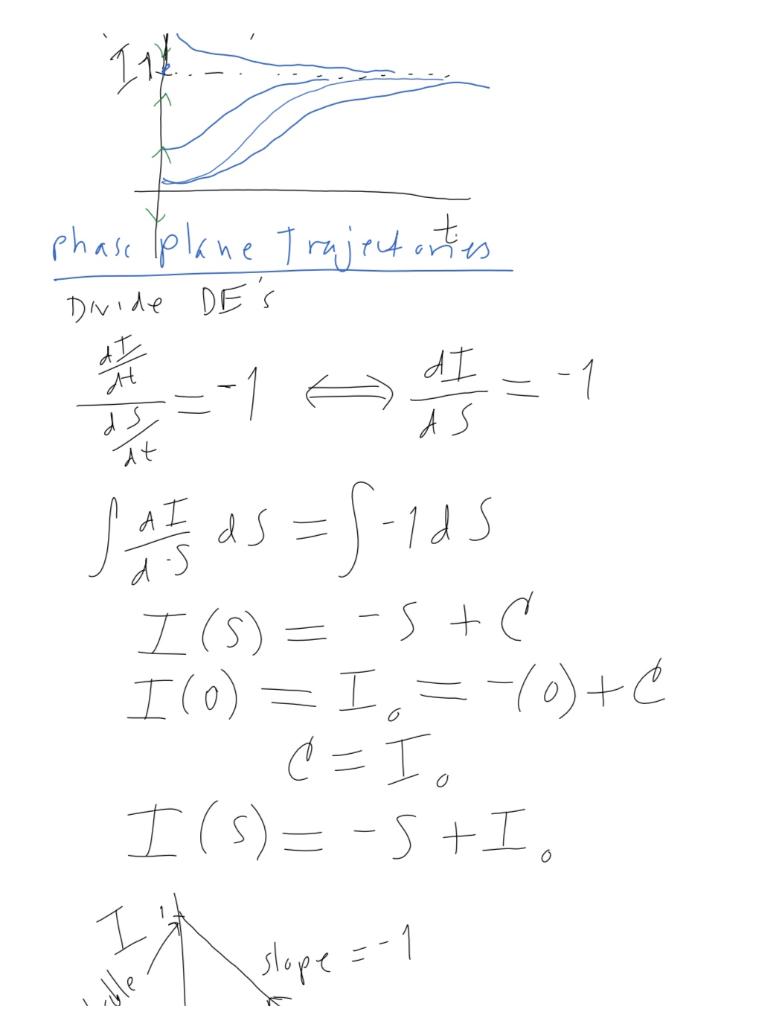 I 1
t
Phase plane Trajectories
Divide DE's
dI/dt / dS/dt = -1 ⟺ dI/dS = -1
∫ dI/dS dS = ∫ -1 dS
I(S) = -S + C
I(0) = I₀ = -(0) + C
C = I₀
I(S) = -S + I₀
I 1
slope = -1